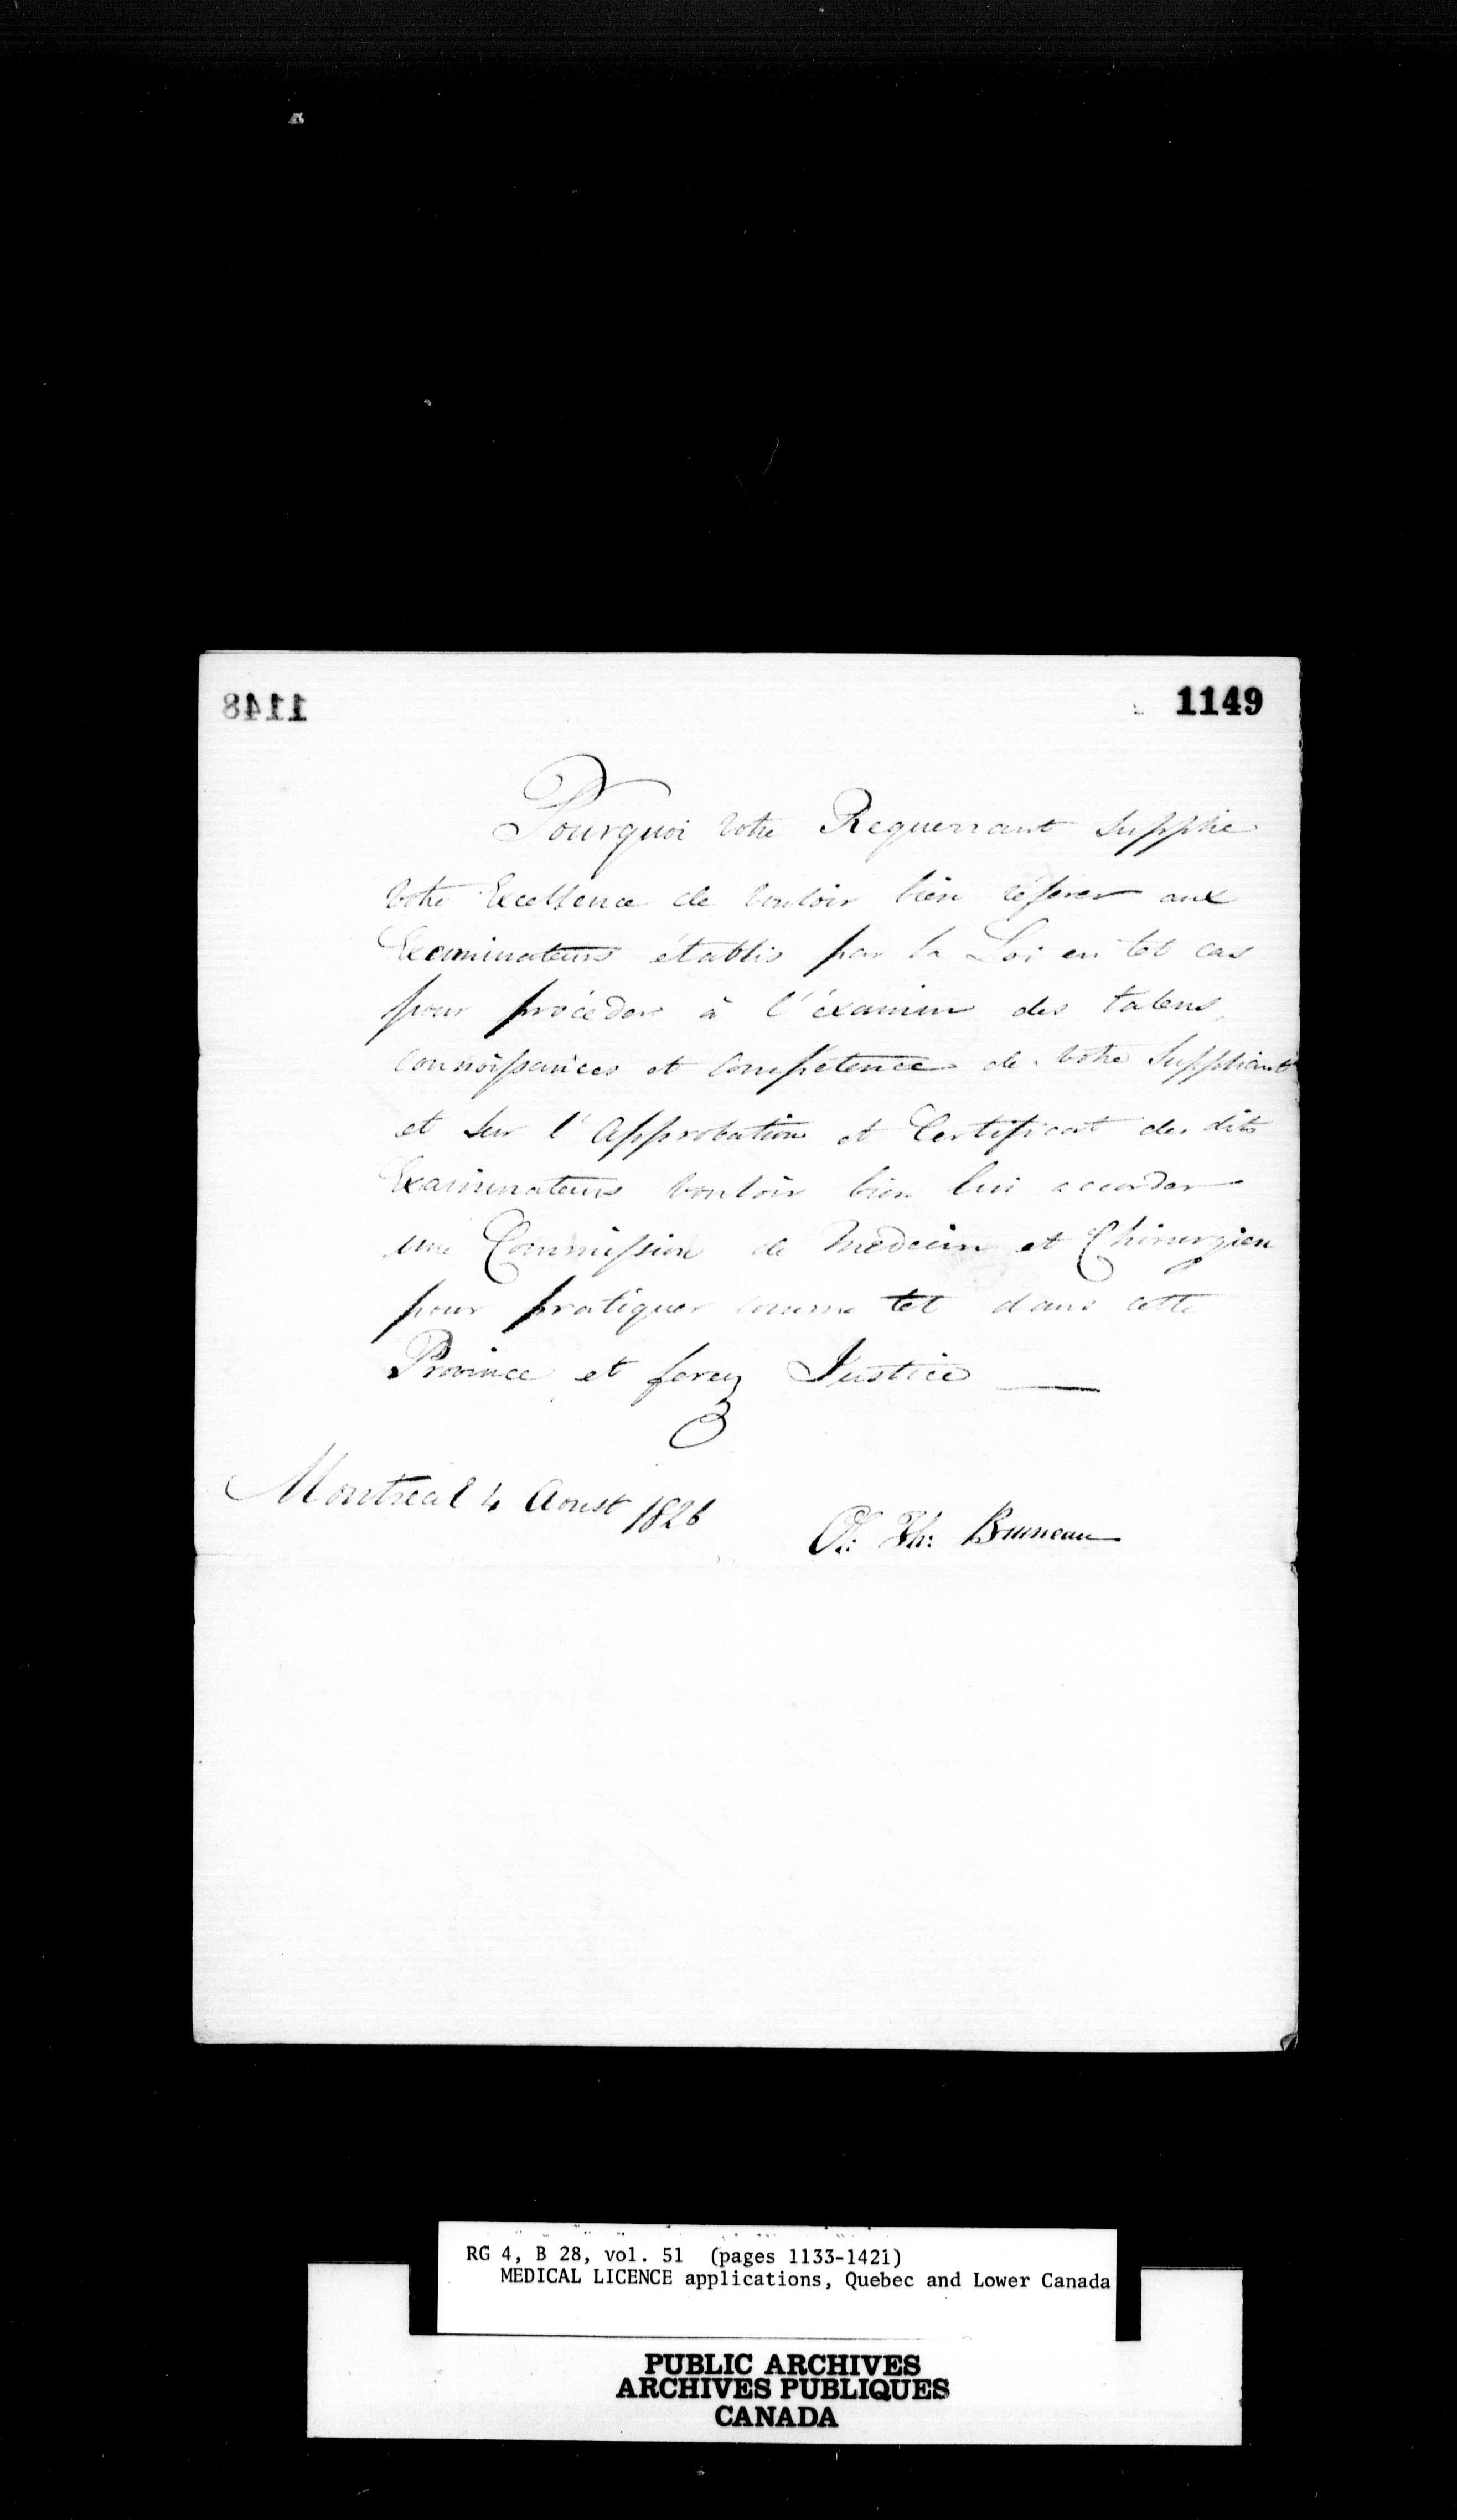 1148
1149
Pourquoi votre Requerrant supplie
votre Excellence de vouloir bien référer aux
Examinateurs établis par la Loi en tel cas
pour procéder à l'éxamen des talens,
connoissances et compétence de votre Suppliant
et sur l'Approbation et Certificat des dits
Examinateurs vouloir bien lui accorder
une Commission de Médecin et Chirurgien
pour pratiquer comme tel dans cette
Province et ferez Justice —
Montreal 4 Aoust 1826
Ol: Th: Bruneau
RG 4, B 28, vol. 51 (pages 1133-1421)
MEDICAL LICENCE applications, Quebec and Lower Canada
PUBLIC ARCHIVES
ARCHIVES PUBLIQUES
CANADA